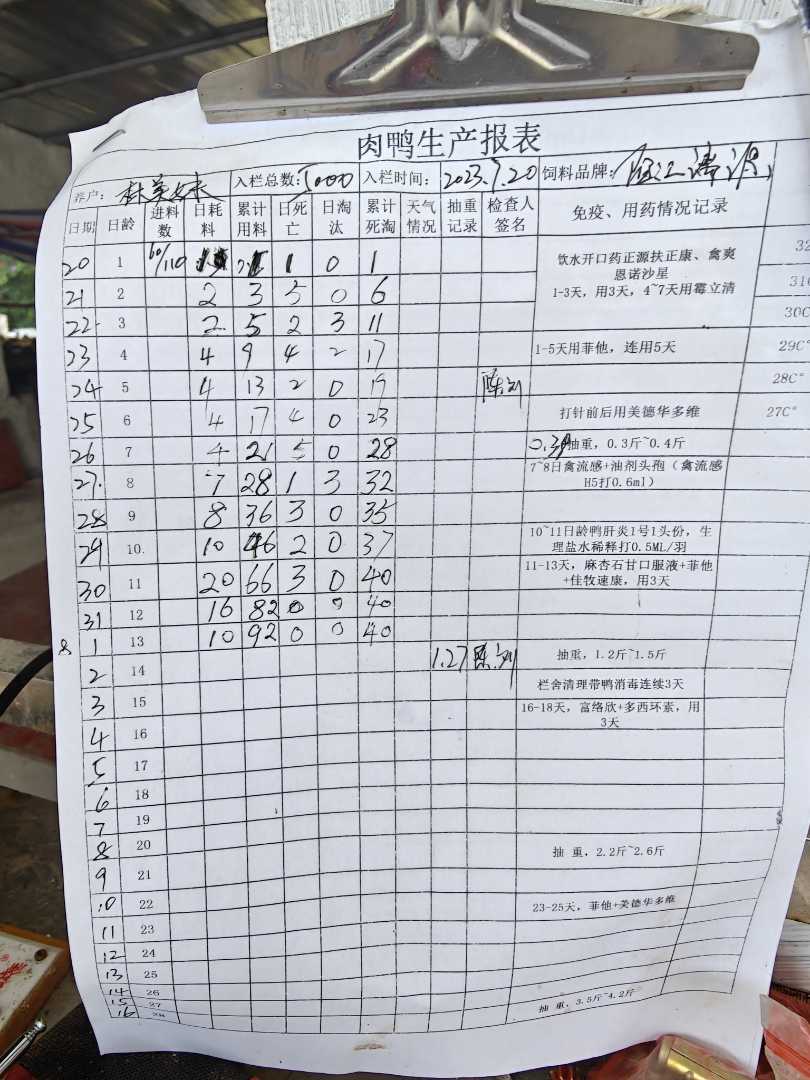 肉鸭生产报表
养户: 入栏总数:5000 入栏时间: 2023.7.20 饲料品牌:
日期 日龄 进料数 日耗料 累计用料 日死亡 日淘汰 累计死淘 天气情况 抽重记录 检查人签名 免疫、用药情况记录
20 1 60/110 1 0 1 饮水开口药正源扶正康、禽爽
恩诺沙星
1-3天，用3天，4~7天用霉立清
21 2 2 3 5 0 6
22 3 2 5 2 3 11 30C
23 4 4 9 4 2 17 1-5天用菲他，连用5天 29C°
24 5 4 13 2 0 19 28C°
25 6 4 17 4 0 23 打针前后用美德华多维 27C°
26 7 4 21 5 0 28 抽重，0.3斤~0.4斤
27. 8 7 28 1 3 32 7~8日禽流感+油剂头孢（禽流感
H5打0.6ml）
28 9 8 36 3 0 35
29 10. 10 46 2 0 37 10~11日龄鸭肝炎1号1头份，生
理盐水稀释打0.5ML/羽
30 11 20 66 3 0 40 11-13天，麻杏石甘口服液+菲他
+佳牧速康，用3天
31 12 16 82 0 0 40
8 1 13 10 92 0 0 40
2 14 1.27 抽重，1.2斤~1.5斤
3 15 栏舍清理带鸭消毒连续3天
4 16 16-18天，富络欣+多西环素，用
3天
5 17
6 18
7 19
8 20 抽 重，2.2斤~2.6斤
9 21
10 22 23-25天，菲他+美德华多维
11 23
12 24
13 25
14 26
15 27 抽 重，3.5斤~4.2斤
16 28